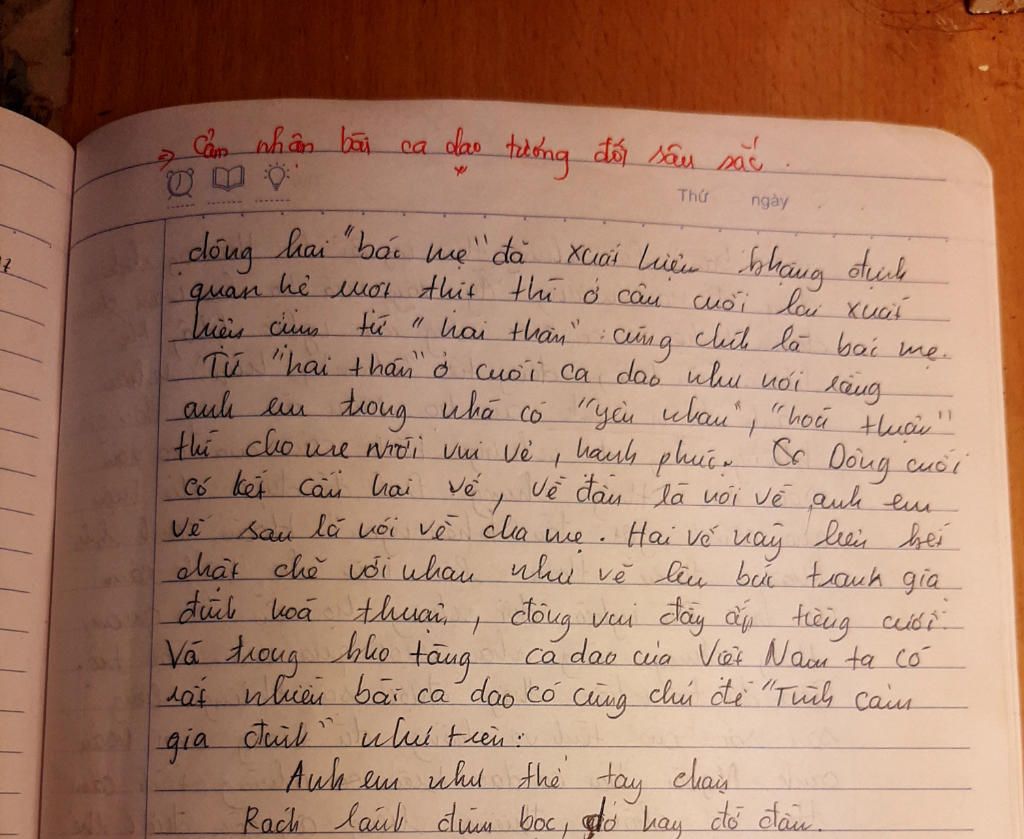 => Cảm nhận bài ca dao tương đối sâu sắc.
Thứ ngày
dòng hai "bác mẹ" đã xuất hiện khẳng định
quan hệ ruột thịt thì ở câu cuối lại xuất
hiện cụm từ "hai thân": cũng chính là bác mẹ.
Từ "hai thân" ở cuối ca dao như nói rằng
anh em trong nhà có "yêu nhau", "hoà thuận"
thì cha mẹ mới vui vẻ, hạnh phúc. Dòng cuối
có kết cấu hai vế, vế đầu là nói về anh em
vế sau là nói về cha mẹ. Hai vế này liên kết
chặt chẽ với nhau như vẽ lên bức tranh gia
đình hoà thuận, đông vui đầy ắp tiếng cười.
Và trong kho tàng ca dao của Việt Nam ta có
rất nhiều bài ca dao có cùng chủ đề "Tình cảm
gia đình" như trên:
Anh em như thể tay chân
Rách lành đùm bọc, dở hay đỡ đần.